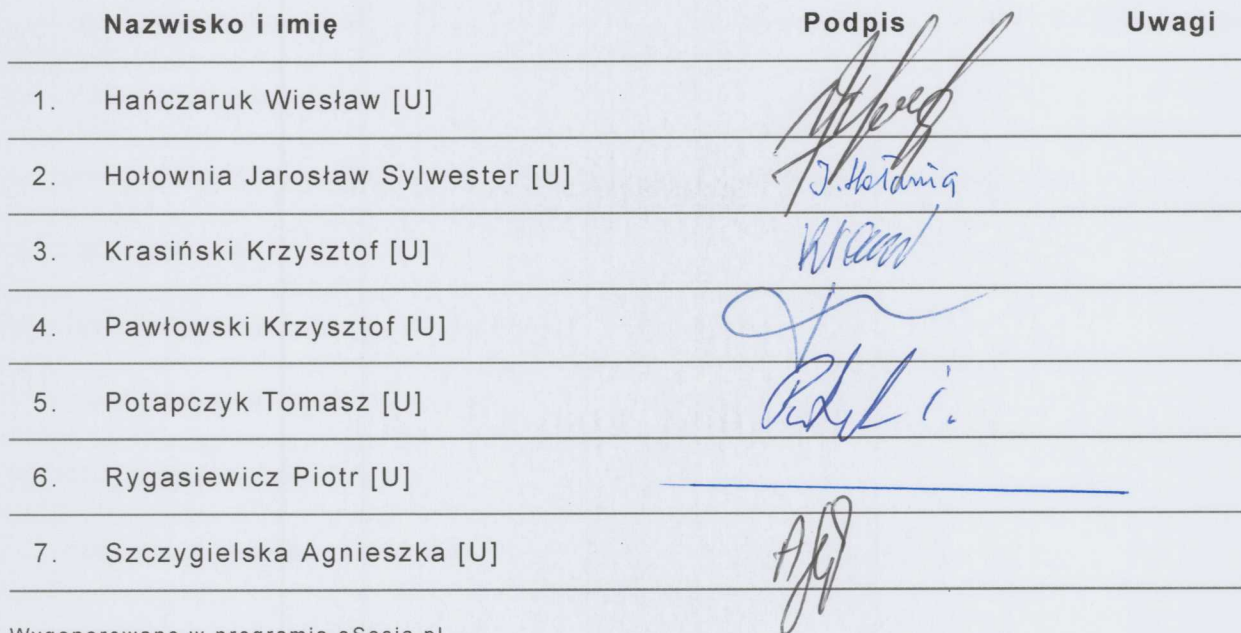 Nazwisko i imię Podpis Uwagi
1. Hańczaruk Wiesław [U]
2. Hołownia Jarosław Sylwester [U] J. Hołownia
3. Krasiński Krzysztof [U]
4. Pawłowski Krzysztof [U]
5. Potapczyk Tomasz [U]
6. Rygasiewicz Piotr [U]
7. Szczygielska Agnieszka [U]
Wygenerowano w programie eSesja.pl